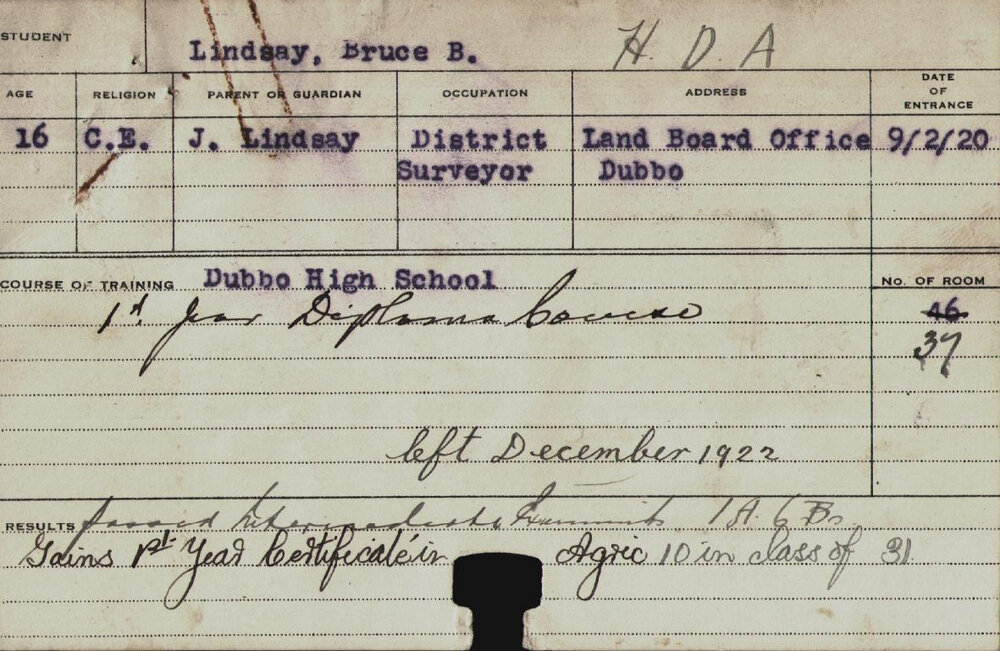 STUDENT Lindsay, Bruce B. H. D. A
AGE RELIGION PARENT OR GUARDIAN OCCUPATION ADDRESS DATE OF ENTRANCE
16 C.E. J. Lindsay District Land Board Office 9/2/20
Surveyor Dubbo
COURSE OF TRAINING Dubbo High School No. OF ROOM
1st year Diploma Course 46
37
left December 1922
RESULTS passed Intermediate 1A. 6 Bs.
Gains 1st Year Certificate in Agric 10 in class of 31